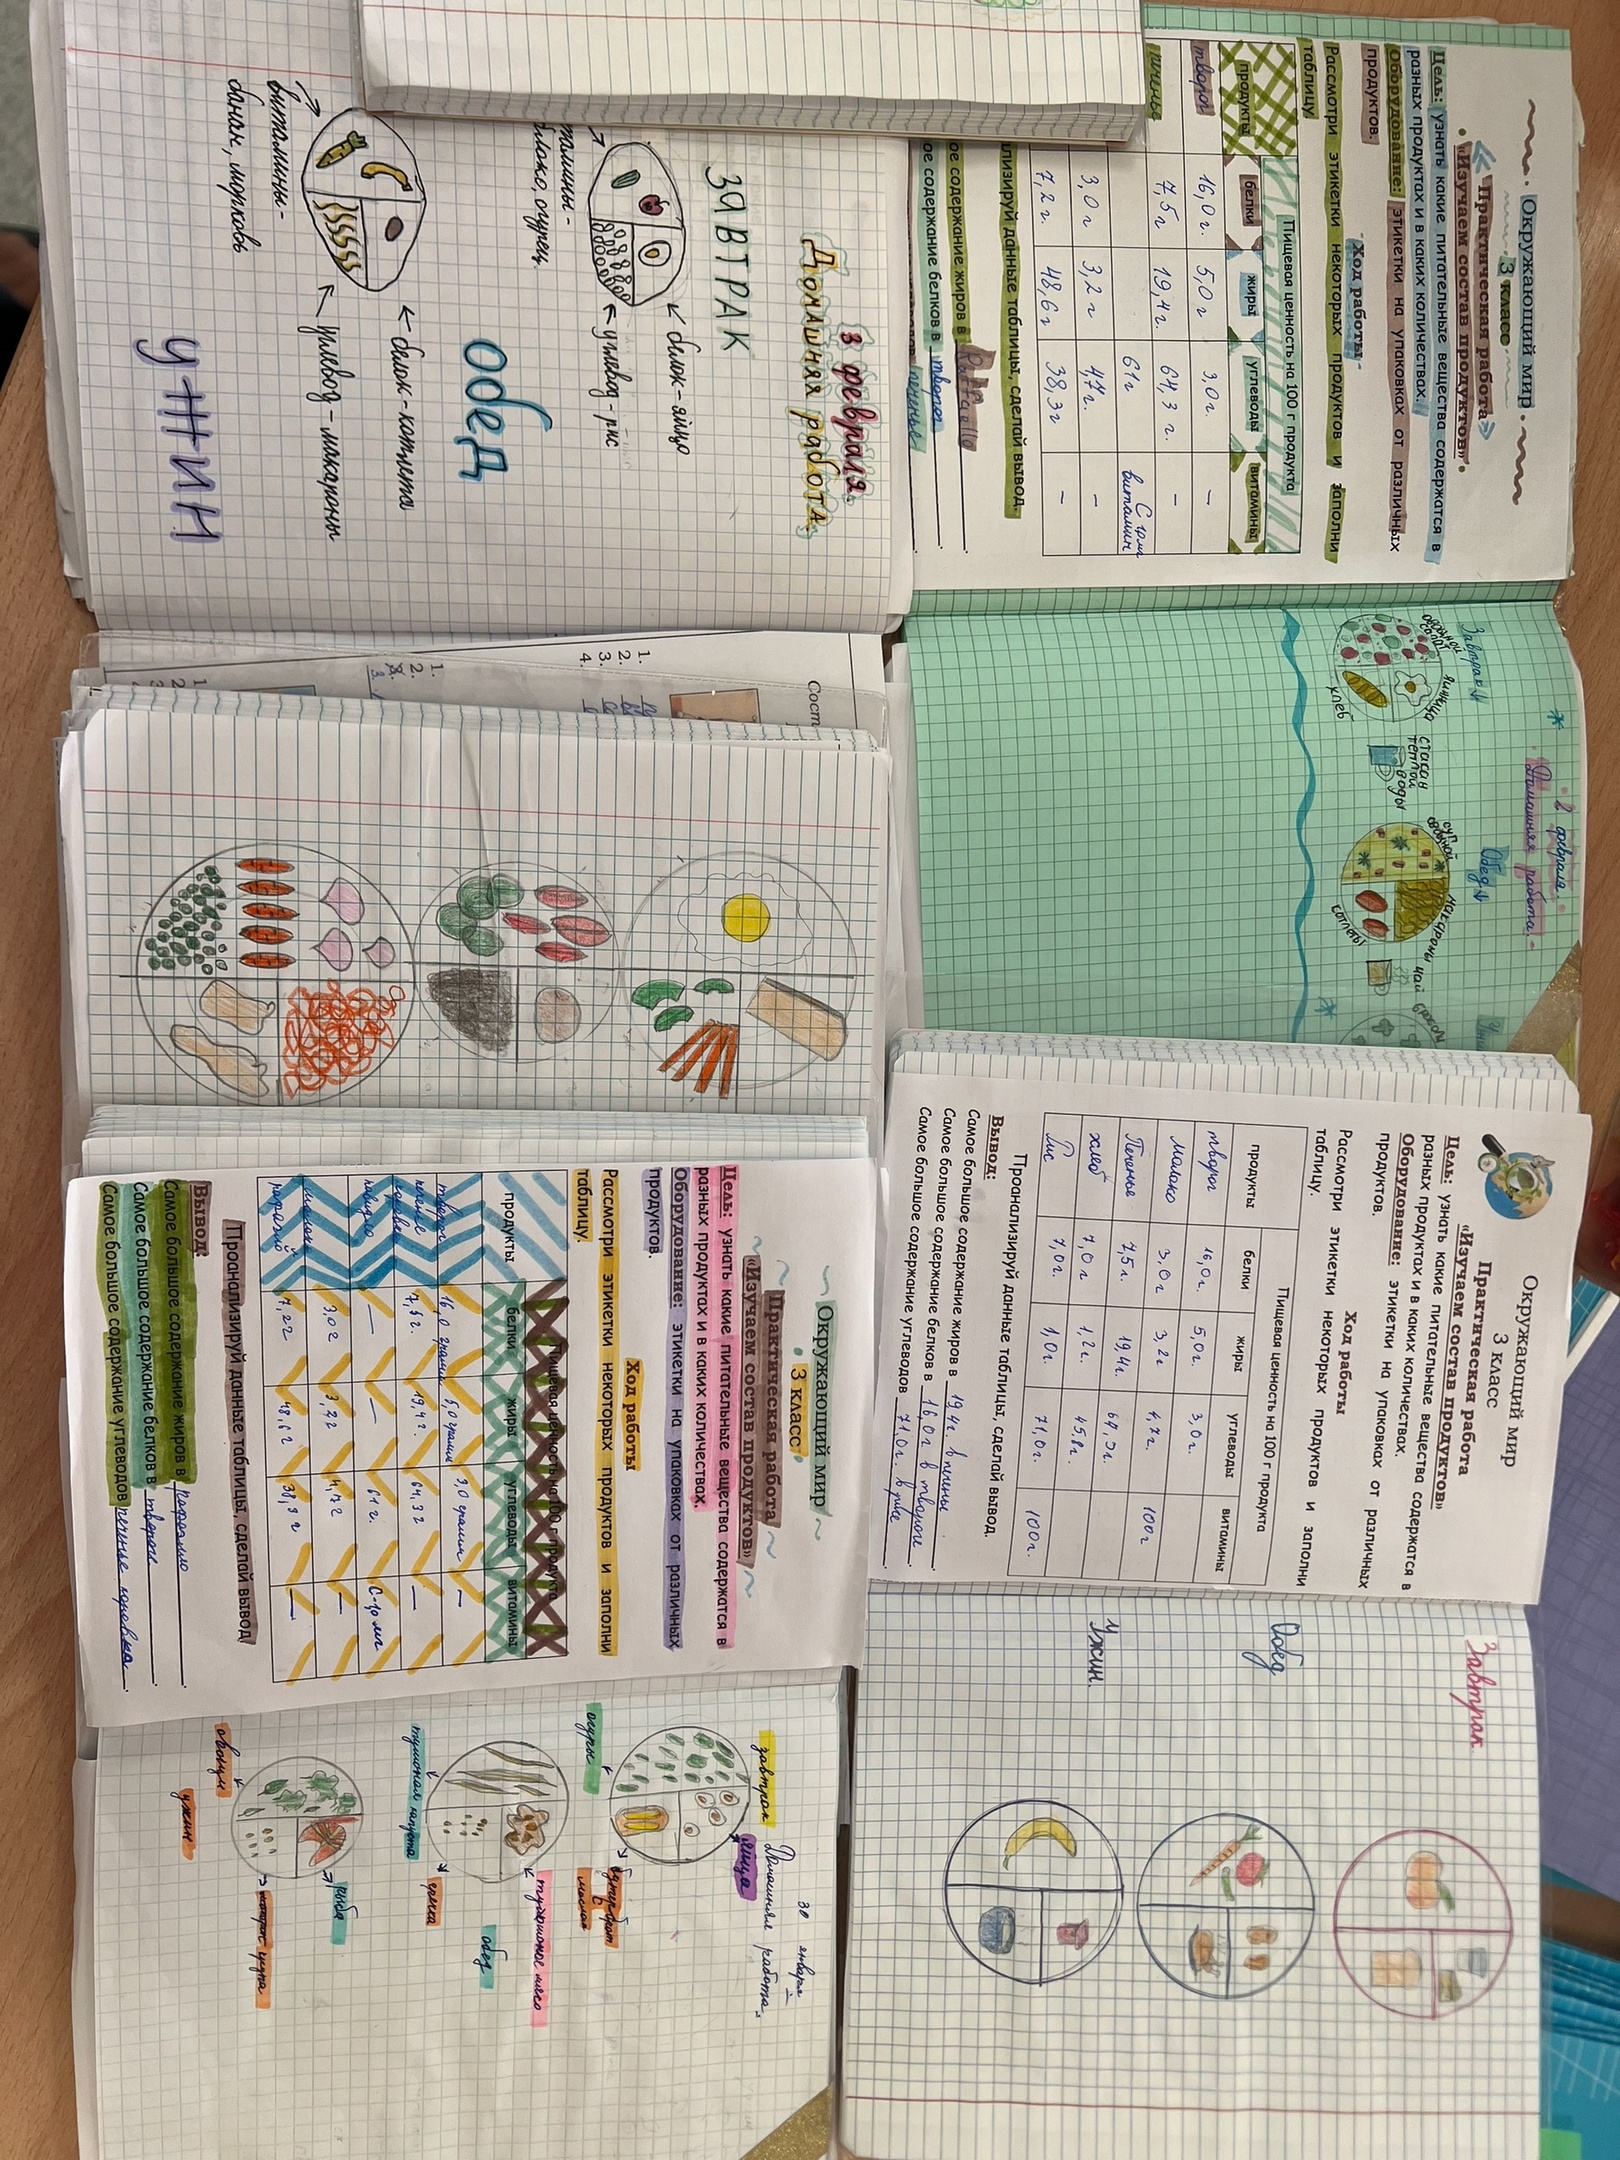 Окружающий мир
3 класс
«Практическая работа»
«Изучаем состав продуктов»
Цель: узнать какие питательные вещества содержатся в
разных продуктах и в каких количествах.
Оборудование: этикетки на упаковках от различных
продуктов.
Ход работы
Рассмотри этикетки некоторых продуктов и заполни
таблицу.
Пищевая ценность на 100 г продукта
продукты белки жиры углеводы витамины
творог 16,0 г. 5,0 г 3,0 г. –
печенье 7,5 г 19,4 г. 64,3 г. –
61 г
витамин
3,0 г 3,2 г 4,7 г. –
7,2 г. 48,6 г 38,3 г –
лизируй данные таблицы, сделай вывод.
ое содержание жиров в Raffaello
ое содержание белков в творог
печенье
2 февраля
Домашняя работа.
Завтрак
овощной салат
яичница
хлеб
стакан теплой воды
Обед
суп овощной
макароны
котлеты
чай
3 февраля.
Домашняя работа
ЗАВТРАК
белок - яйцо
углевод - рис
яблоко, огурец.
Обед
белок - котлета
углевод - макароны
витамины -
банан, морковь
УЖИН
Сост
1.
2.
3.
4.
1.
2.
Окружающий мир
3 класс
Практическая работа
«Изучаем состав продуктов»
Цель: узнать какие питательные вещества содержатся в
разных продуктах и в каких количествах.
Оборудование: этикетки на упаковках от различных
продуктов.
Ход работы
Рассмотри этикетки некоторых продуктов и заполни
таблицу.
Пищевая ценность на 100 г продукта
продукты белки жиры углеводы витамины
творог 16,0г. 5,0г. 3,0г.
молоко 3,0г 3,2г 4,7г. 100г
Печенье 7,5г. 19,4г. 64,3г.
хлеб 7,0г 1,2г. 45,8г.
Рис 7,0г. 1,0г. 71,0г. 100г.
Проанализируй данные таблицы, сделай вывод.
Вывод:
Самое большое содержание жиров в 19,4г. в печенье.
Самое большое содержание белков в 16,0г в твороге.
Самое большое содержание углеводов 71,0г. в рисе.
Завтрак
Обед
Ужин.
Окружающий мир
3 класс
Практическая работа
«Изучаем состав продуктов»
Цель: узнать какие питательные вещества содержатся в
разных продуктах и в каких количествах.
Оборудование: этикетки на упаковках от различных
продуктов.
Ход работы
Рассмотри этикетки некоторых продуктов и заполни
таблицу.
Пищевая ценность на 100 г продукта
продукты белки жиры углеводы витамины
творог 16,0 грамм 5,0 грамм 3,0 грамм –
печенье 7,5 г. 19,4 г. 64,3 г –
– – 61 г.
молоко 3,0 г 3,2 г 4,7 г –
7,2 г 48,6 г 38,3 г –
Проанализируй данные таблицы, сделай вывод.
Вывод:
Самое большое содержание жиров в
Самое большое содержание белков в твороге
Самое большое содержание углеводов печенье
30 января
Домашняя работа
завтрак
яйца
огурцы
бутерброт с маслом
обед
тушоное мясо
тушоная капуста
гречка
рыба
овощи
ужин